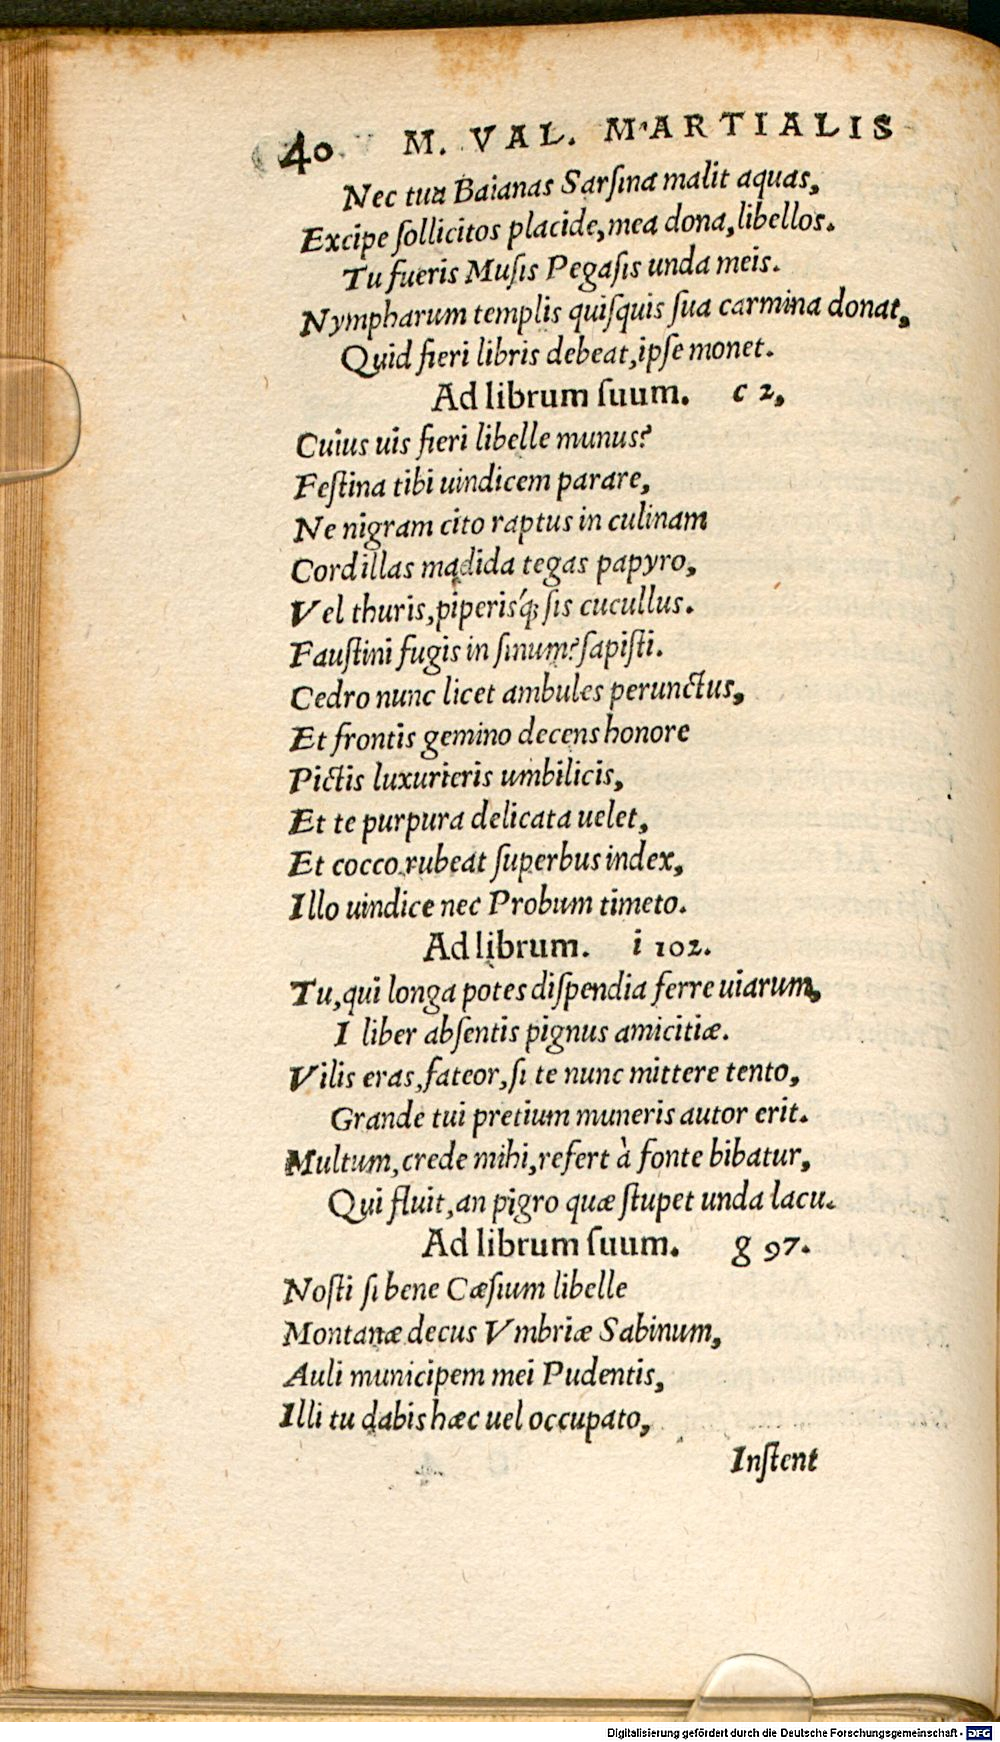 40 M. VAL. MARTIALIS
Nec tua Baianas Sarſina malit aquas,
Excipe ſollicitos placide, mea dona, libellos.
Tu fueris Muſis Pegaſis unda meis.
Nympharum templis quiſquis ſua carmina donat,
Quid fieri libris debeat, ipſe monet.
Ad librum ſuum. c 2,
Cuius uis fieri libelle munus?
Feſtina tibi uindicem parare,
Ne nigram cito raptus in culinam
Cordillas madida tegas papyro,
Vel thuris, piperis'q; ſis cucullus.
Fauſtini fugis in ſinum? ſapiſti.
Cedro nunc licet ambules perunctus,
Et frontis gemino decens honore
Pictis luxurieris umbilicis,
Et te purpura delicata uelet,
Et cocco rubeat ſuperbus index,
Illo uindice nec Probum timeto.
Ad librum. i 102.
Tu, qui longa potes diſpendia ferre uiarum,
I liber abſentis pignus amicitiæ.
Vilis eras, fateor, ſi te nunc mittere tento,
Grande tui pretium muneris autor erit.
Multum, crede mihi, refert à fonte bibatur,
Qui fluit, an pigro quæ ſtupet unda lacu.
Ad librum ſuum. g 97.
Noſti ſi bene Cæſium libelle
Montanæ decus Vmbriæ Sabinum,
Auli municipem mei Pudentis,
Illi tu dabis hæc uel occupato,
Inſtent
Digitalisierung gefördert durch die Deutsche Forschungsgemeinschaft - DFG